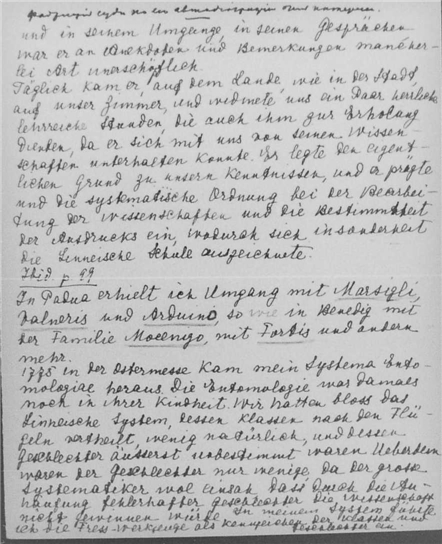 und in seinem Umgange in seinen Gesprächen
war er an Anekdoten und Bemerkungen mancher-
lei Art unerschöpflich
Täglich kam er, auf dem Lande, wie in der Stadt,
auf unser Zimmer, und widmete uns ein Paar herrliche
lehrreiche Stunden, die auch ihm zur Erholung
dienten, da er sich mit uns von seinen Wissen
schaften unterhalten konnte. Er legte den eigent-
lichen Grund zu unsern Kenntnissen, und er prägte
und die systematische Ordnung bei der Bearbei-
tung der Wissenschaften und die Bestimmtheit
der Ausdrucks ein, wodurch sich insonderheit
die Linneische Schule auszeichnete.
Ibid p 99
In Padua erhielt ich Umgang mit Marsigli,
Valneris und Arduino, so wie in Benedig mit
der Familie Mocenigo, mit Fortis und andern
mehr.
1775 in der Ostermesse kam mein Systema Ento-
mologiae heraus. Die Entomologie war damals
noch in ihrer Kindheit. Wir hatten bloss das
Linneische System, dessen Klassen nach den Flü-
geln vertheilt, wenig natürlich, und dessen
Geschlechter äusserst unbestimmt waren Ueberdem
waren der Geschlechter nur wenige da der grosse
Systematiker wol einsah dass durch die An-
häufung fehlerhafter Geschlechter die Wissenschaft
nicht gewinnen würde In meinem System führte
ich die Fress-Werkzeuge als kennzeichen der Klassen und
Geschlechter ein